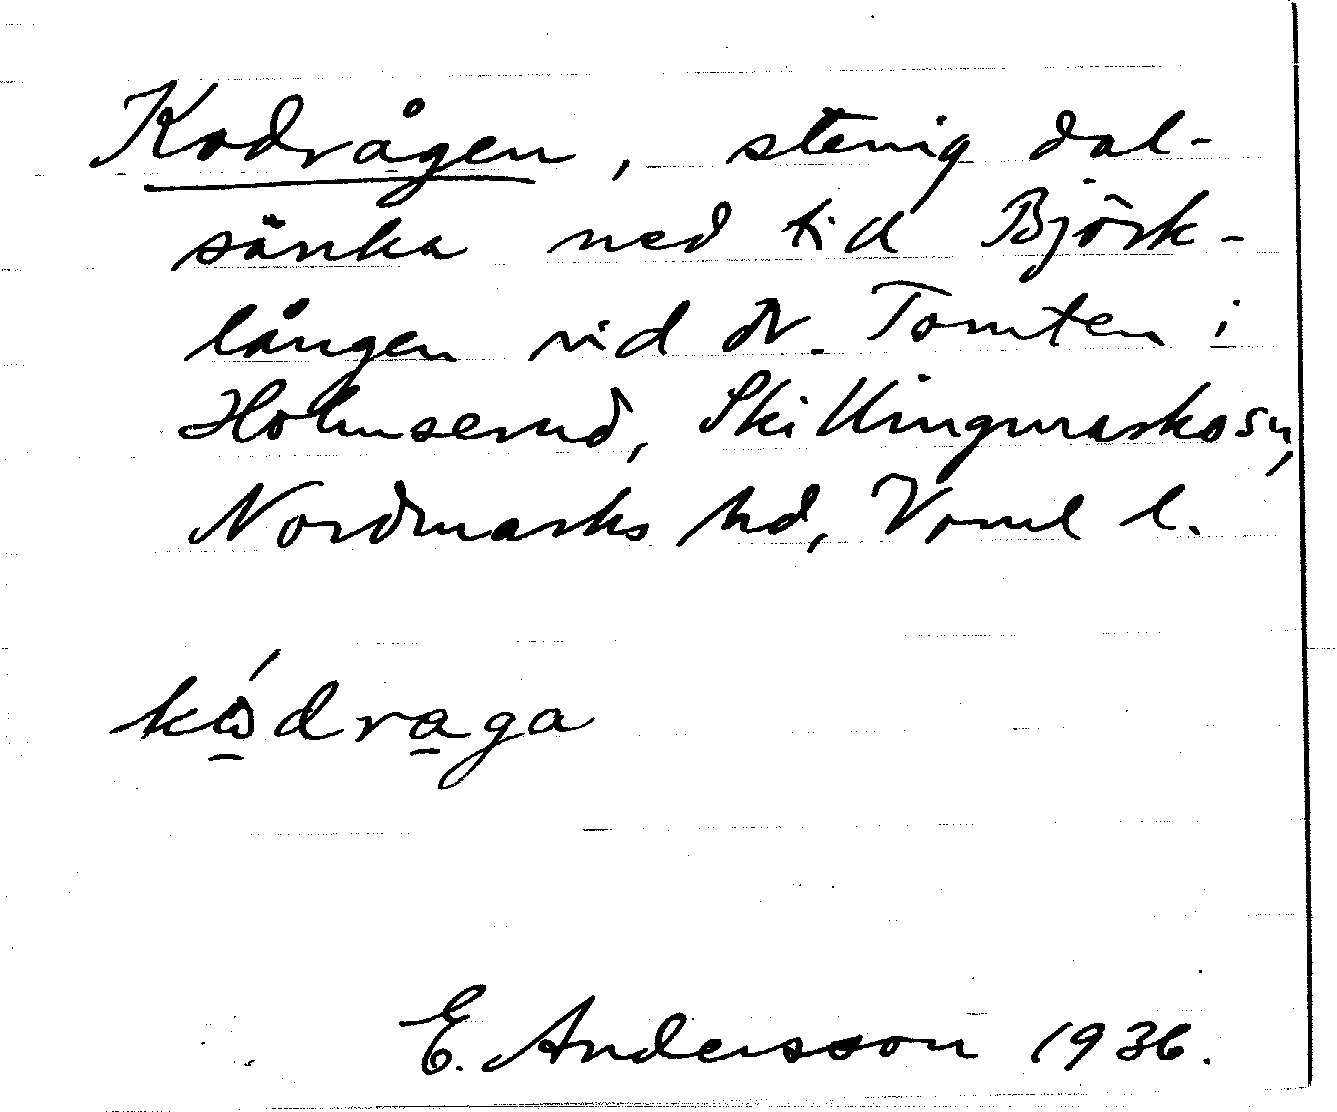 Kodrågen, stenig dal-
sänka ned till Björk-
lången vid N. Tomten i
Holmserud, Skillingmarks sn,
Nordmarks hd, Vrml l.
kódraga
E. Andersson 1936.